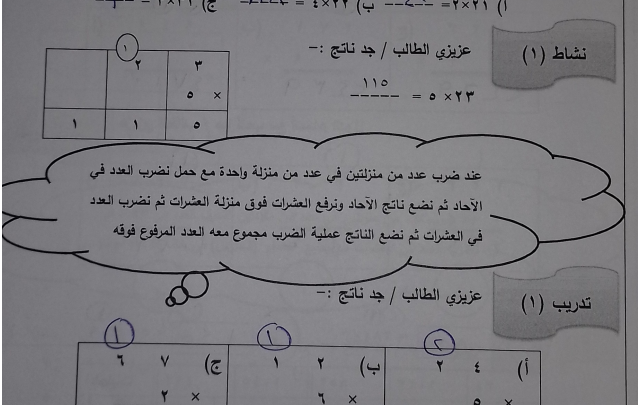 أ) ٢١×٢=
ب) ٢٢×٤ =
نشاط (١)
عزيزي الطالب / جد ناتج :-
٢٣×٥ = ١١٥
١
٢ ٣
× ٥
١ ١ ٥
عند ضرب عدد من منزلتين في عدد من منزلة واحدة مع حمل نضرب العدد في
الآحاد ثم نضع ناتج الآحاد ونرفع العشرات فوق منزلة العشرات ثم نضرب العدد
في العشرات ثم نضع الناتج عملية الضرب مجموع معه العدد المرفوع فوقه
تدريب (١)
عزيزي الطالب / جد ناتج :-
٢ ١ ١
أ) ٢ ٤ ب) ١ ٢ ج) ٦ ٧
× ٥ × ٦ × ٢